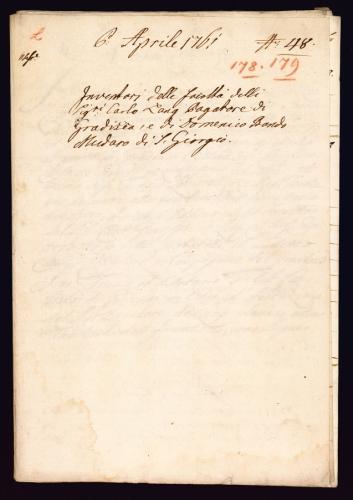 6. Aprile 1761 No: 48.
178. 179
Inventarj delle facoltà delli
Sigri Carlo Zang Bagatore di
Gradisca, e di Domenico Bondi
Mudaro di S. Giorgio.